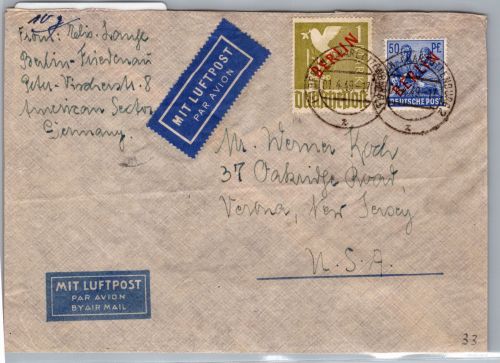 10 g
From: Elis. Lange
Berlin-Friedenau
Peter-Vischerstr. 8
American Sector
Germany.
MIT LUFTPOST
PAR AVION
BERLIN
50 PF
BERLIN
DEUTSCHE POST
Mr. Werner Koch
37 Oakridge Road,
Verona, New Jersey
U.S.A.
MIT LUFTPOST
PAR AVION
BY AIR MAIL
33